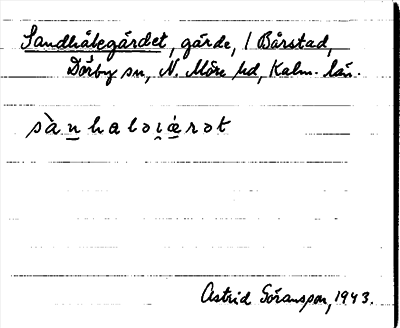 Sandhålegärdet, gärde, 1 Bårstad,
Dörby sn, N. Möre hd, Kalm. län.
sàn̲haləi̯ǽrət
Astrid Göransson, 1943.